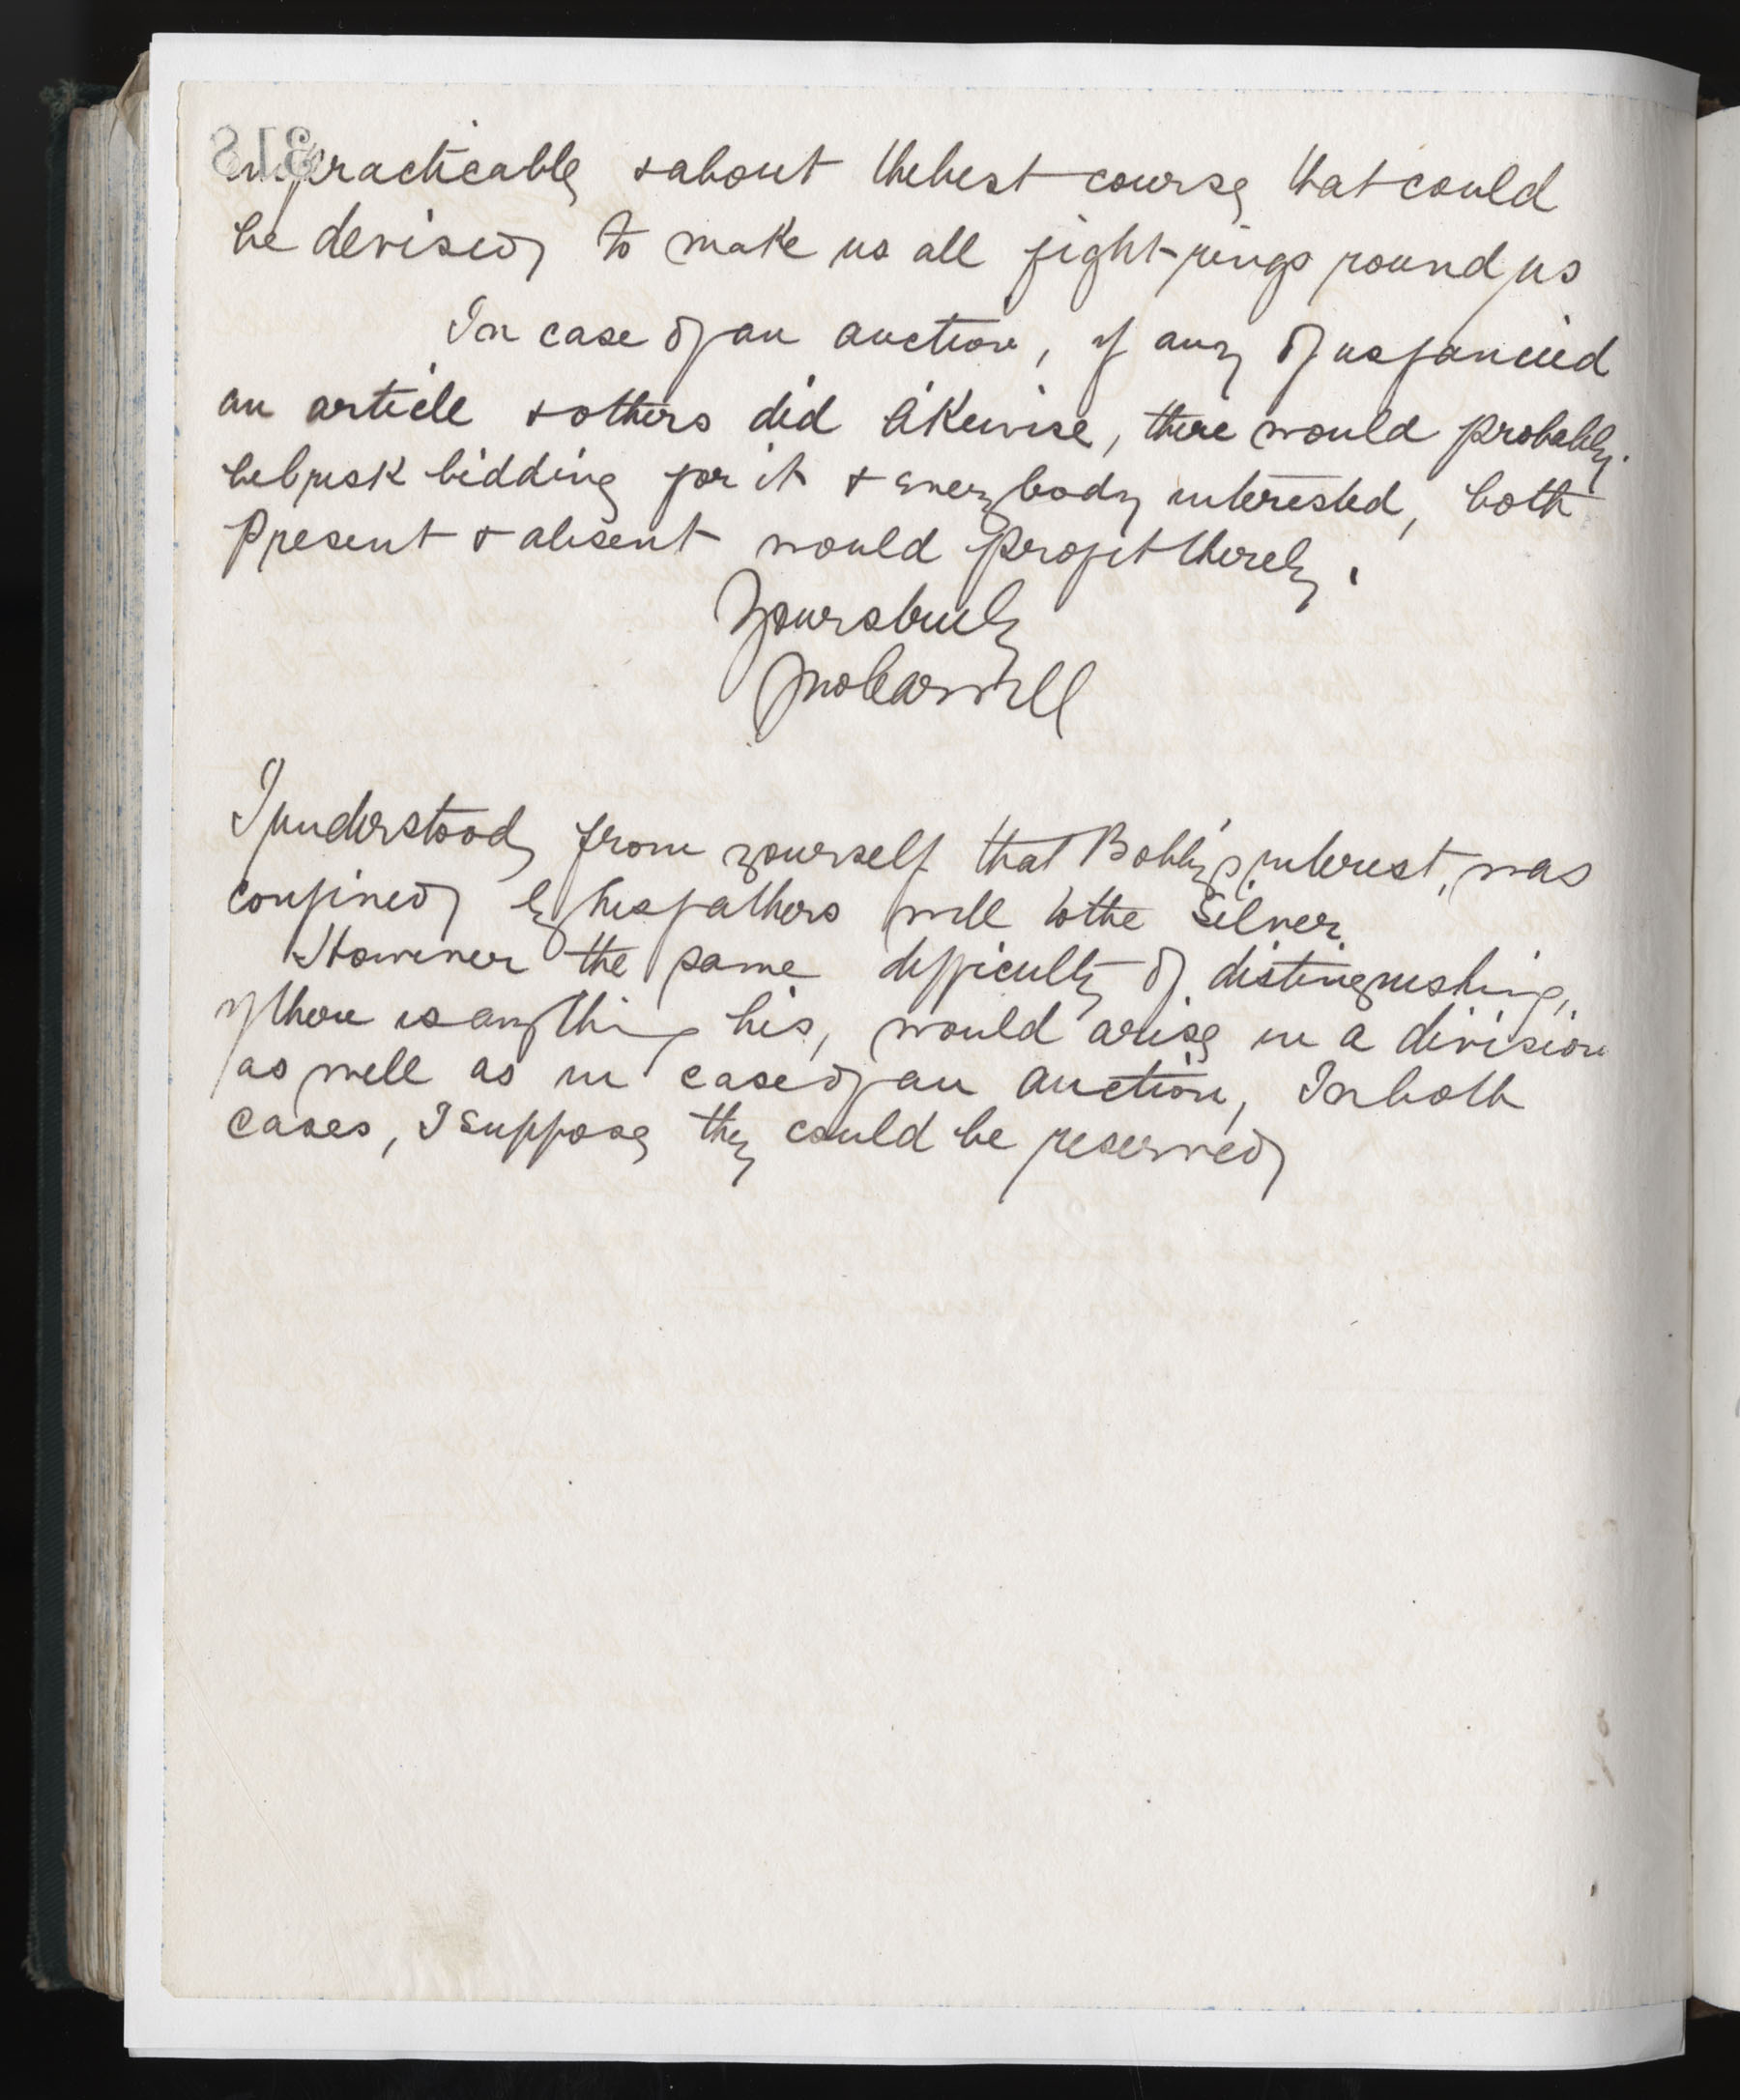 impracticable & about the best course that could
be devised to make us all fight rings round us
In case of an auction, if any of us fancied
an article & others did likewise, there would probably
be brisk bidding for it & everybody interested, both
present & absent would profit thereby.
Yours truly
Jno Carvill
I understood from yourself that Bobby's interest, was
confined by his fathers will to the Silver.
However the same difficulty of distinguishing,
if there is anything his, would arise in a division
as well as in case of an auction, In both
cases, I suppose they could be reserved